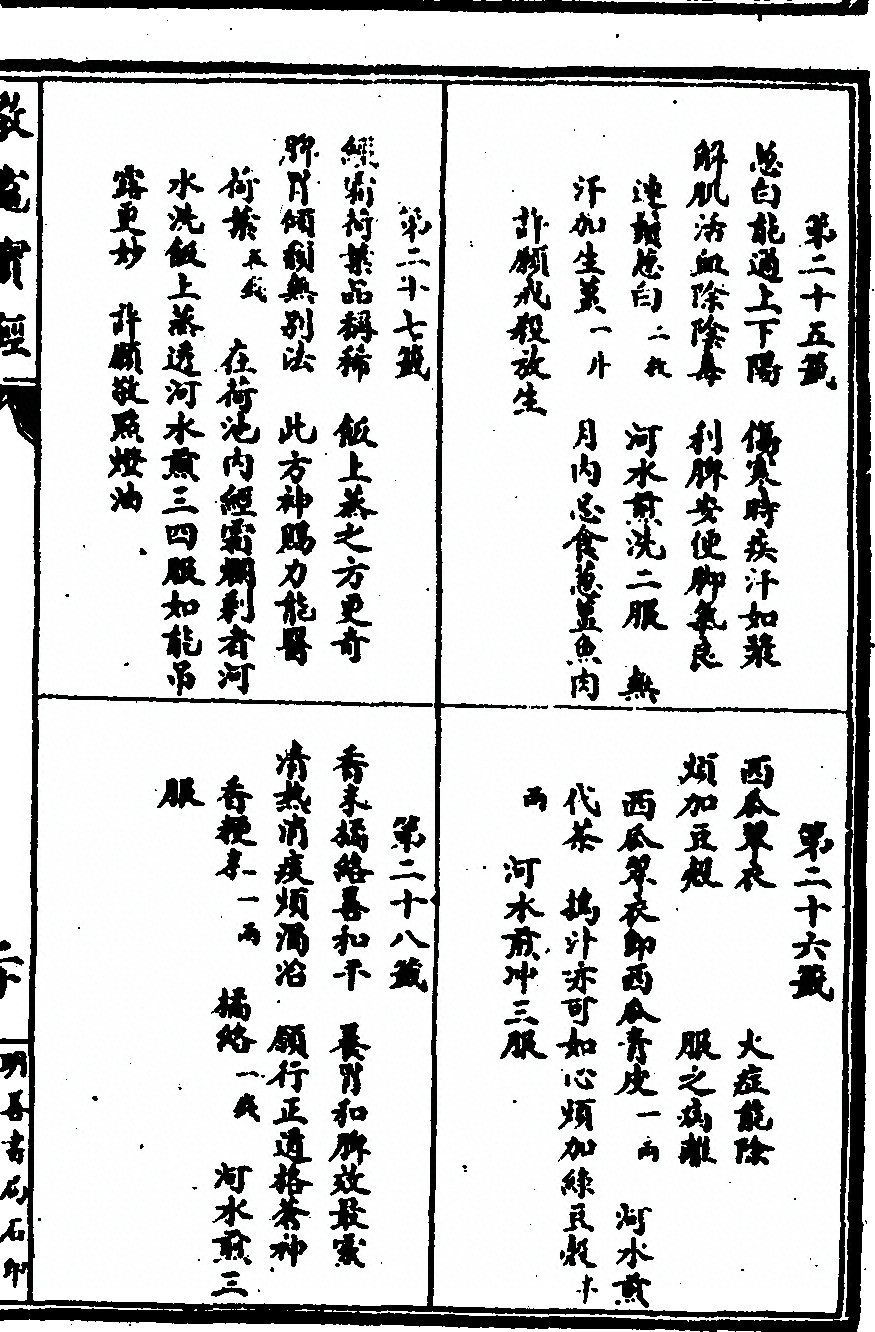 第二十五籤
葱白能通上下陽　傷寒時疾汗如漿
解肌活血除陰毒　利脾安便腳氣良
連鬚葱白二枚　河水煎洗二服　無
汗加生薑一片　月內忌食葱薑魚肉
許願戒殺放生
第二十六籤
西瓜翠衣　火症能除
煩加豆殼　服之病離
西瓜翠衣即西瓜青皮一兩　河水煎
代茶　搗汁亦可如心煩加綠豆殼半
兩　河水煎冲三服
第二十七籤
經霜荷葉品稱稀　飯上蒸之方更奇
脾胃傾頹無別法　此方神賜力能醫
荷葉五錢　在荷池內經霜爛剩者河
水洗飯上蒸透河水煎三四服如能吊
露更妙　許願敬點燈油
第二十八籤
香米橘絡善和平　養胃和脾效最靈
清熱消痰煩濁治　願行正道格蒼神
香粳米一兩　橘絡一錢　河水煎三
服
敬竈寶經
二十
明善書局石印